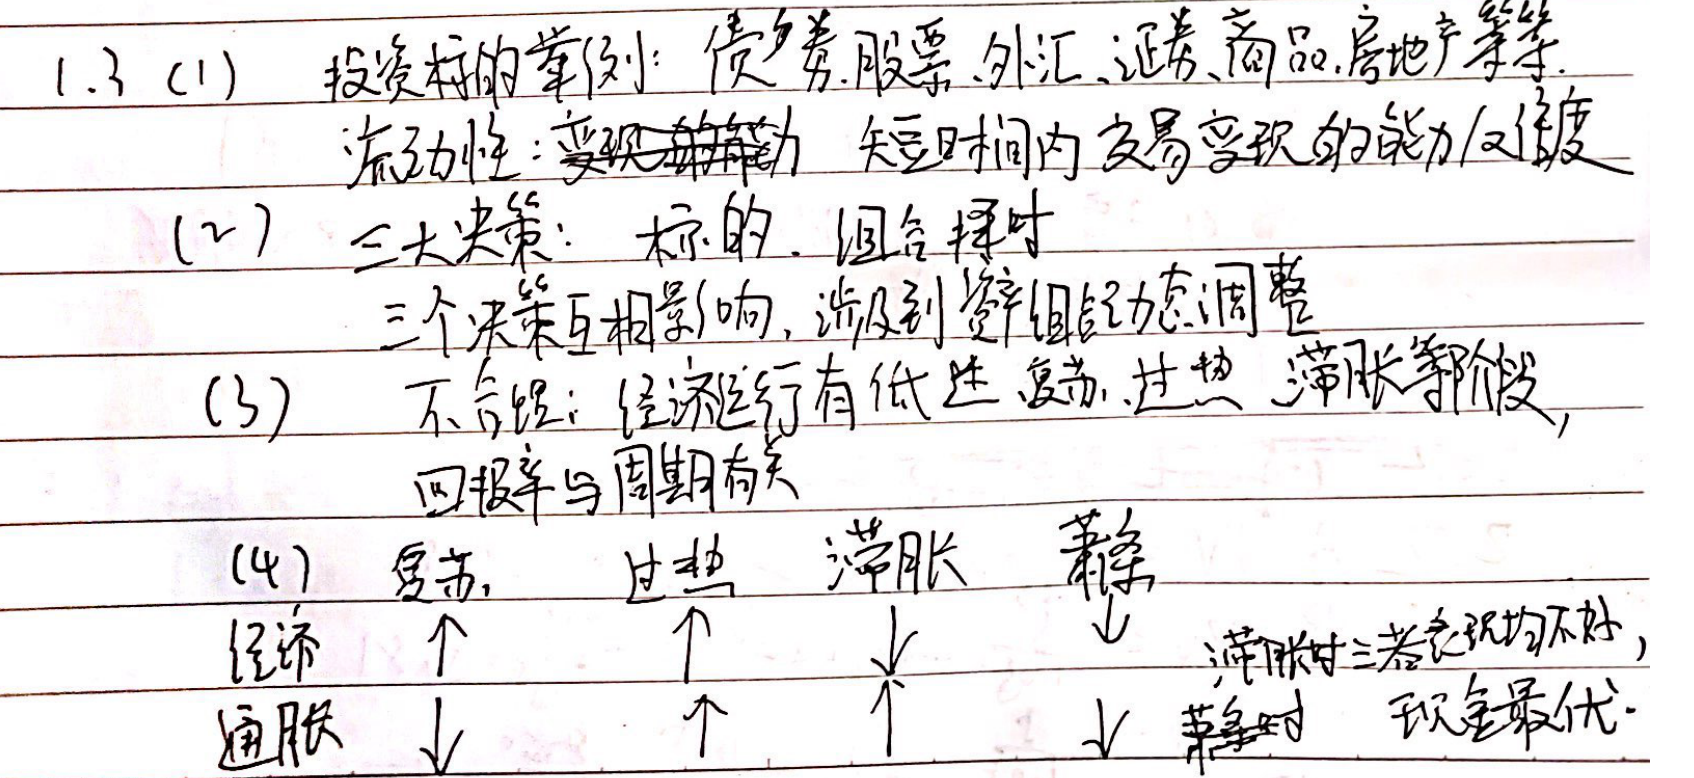 1.3 (1) 投资标的举例: 债券.股票.外汇、证券、商品.房地产等等.
流动性: 短时间内交易变现的能力/难度
(2) 三大决策: 标的. 组合择时
三个决策互相影响, 涉及到资产组合动态调整
(3) 不合理: 经济运行有低迷.复苏.过热 滞胀等阶段,
回报率与周期有关
(4) 复苏 过热 滞胀 萧条
经济 ↑ ↑ ↓ ↓ 滞胀时三者表现均不好,
通胀 ↓ ↑ ↑ ↓ 现金最优.